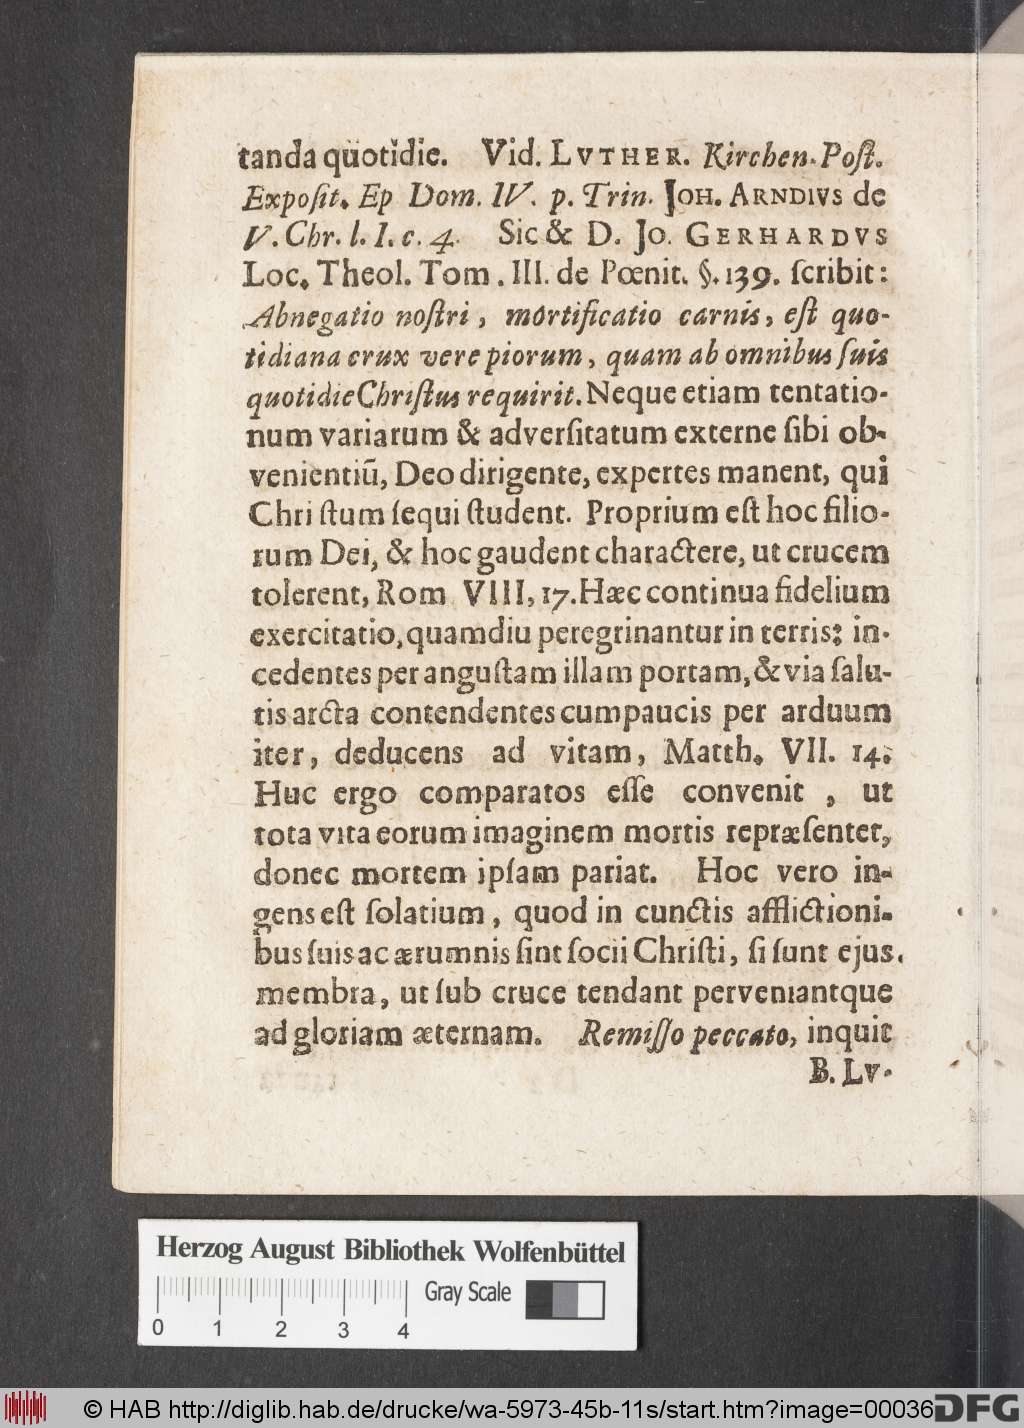 tanda quotidie. Vid. LVTHER. Kirchen-Poſt.
Expoſit. Ep Dom. IV. p. Trin. JOH. ARNDIVS de
V. Chr. l. I. c. 4. Sic & D. JO. GERHARDVS
Loc. Theol. Tom. III. de Pœnit. §. 139. ſcribit:
Abnegatio noſtri, mortificatio carnis, eſt quo-
tidiana crux vere piorum, quam ab omnibus ſuis
quotidie Chriſtus requirit. Neque etiam tentatio-
num variarum & adverſitatum externe ſibi ob-
venientiũ, Deo dirigente, expertes manent, qui
Chriſtum ſequi ſtudent. Proprium eſt hoc filio-
rum Dei, & hoc gaudent charactere, ut crucem
tolerent, Rom VIII, 17. Hæc continua fidelium
exercitatio, quamdiu peregrinantur in terris; in-
cedentes per anguſtam illam portam, & via ſalu-
tis arcta contendentes cum paucis per arduum
iter, deducens ad vitam, Matth. VII. 14.
Huc ergo comparatos eſſe convenit, ut
tota vita eorum imaginem mortis repræſentet,
donec mortem ipſam pariat. Hoc vero in-
gens eſt ſolatium, quod in cunctis afflictioni-
bus ſuis ac ærumnis ſint ſocii Chriſti, ſi ſunt ejus
membra, ut ſub cruce tendant perveniantque
ad gloriam æternam. Remiſſo peccato, inquit
B. LV-
Herzog August Bibliothek Wolfenbüttel
Gray Scale
0 1 2 3 4
© HAB http://diglib.hab.de/drucke/wa-5973-45b-11s/start.htm?image=00036
DFG